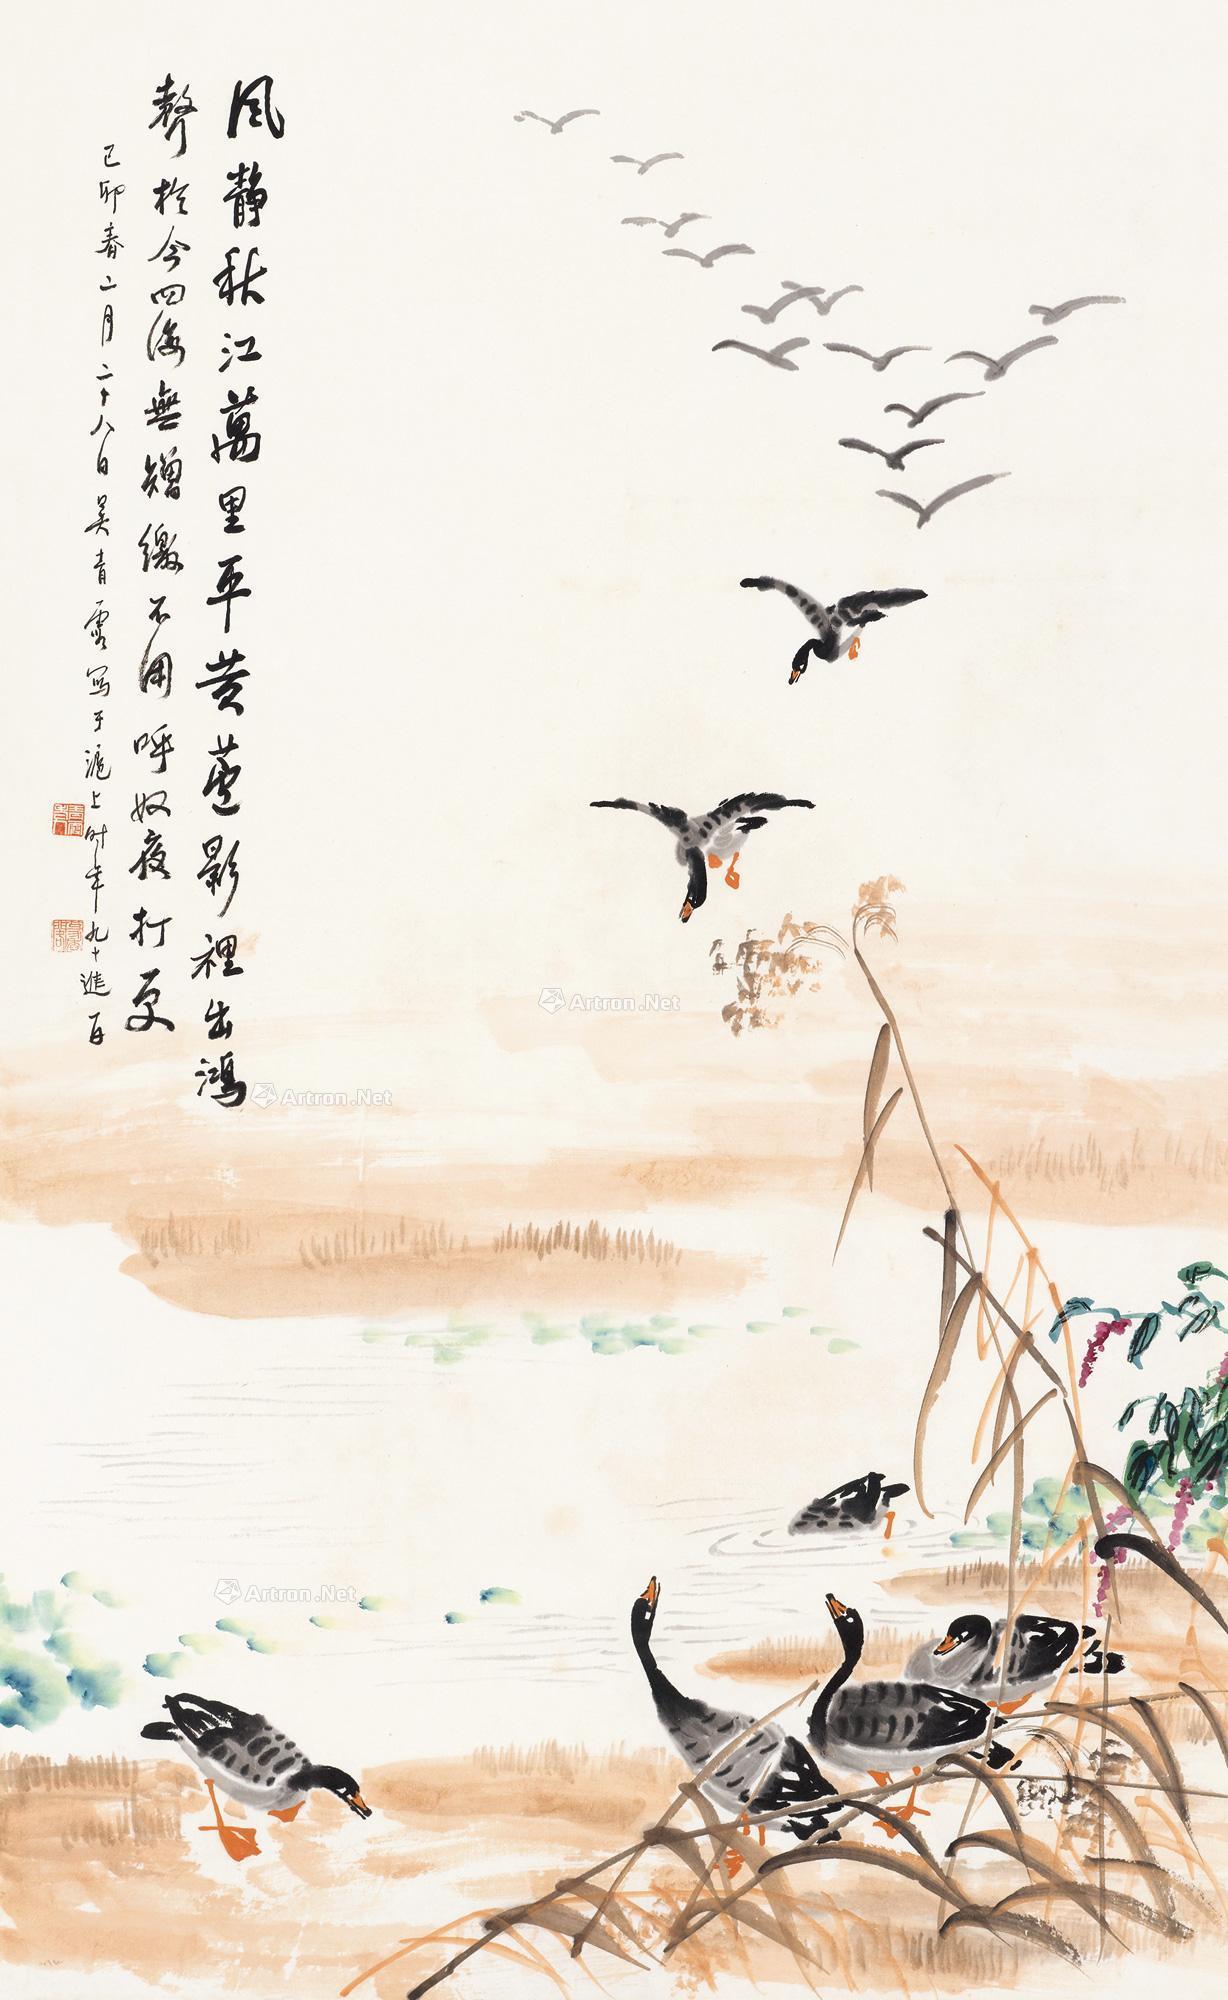 風静秋江萬里平黄蘆影裡出鴻
聲於今四海無矰繳不用呼奴夜打更
己卯春二月二十八日吴青霞写于滬上时年九十進一
Artron.Net
Artron.Net
Artron.Net